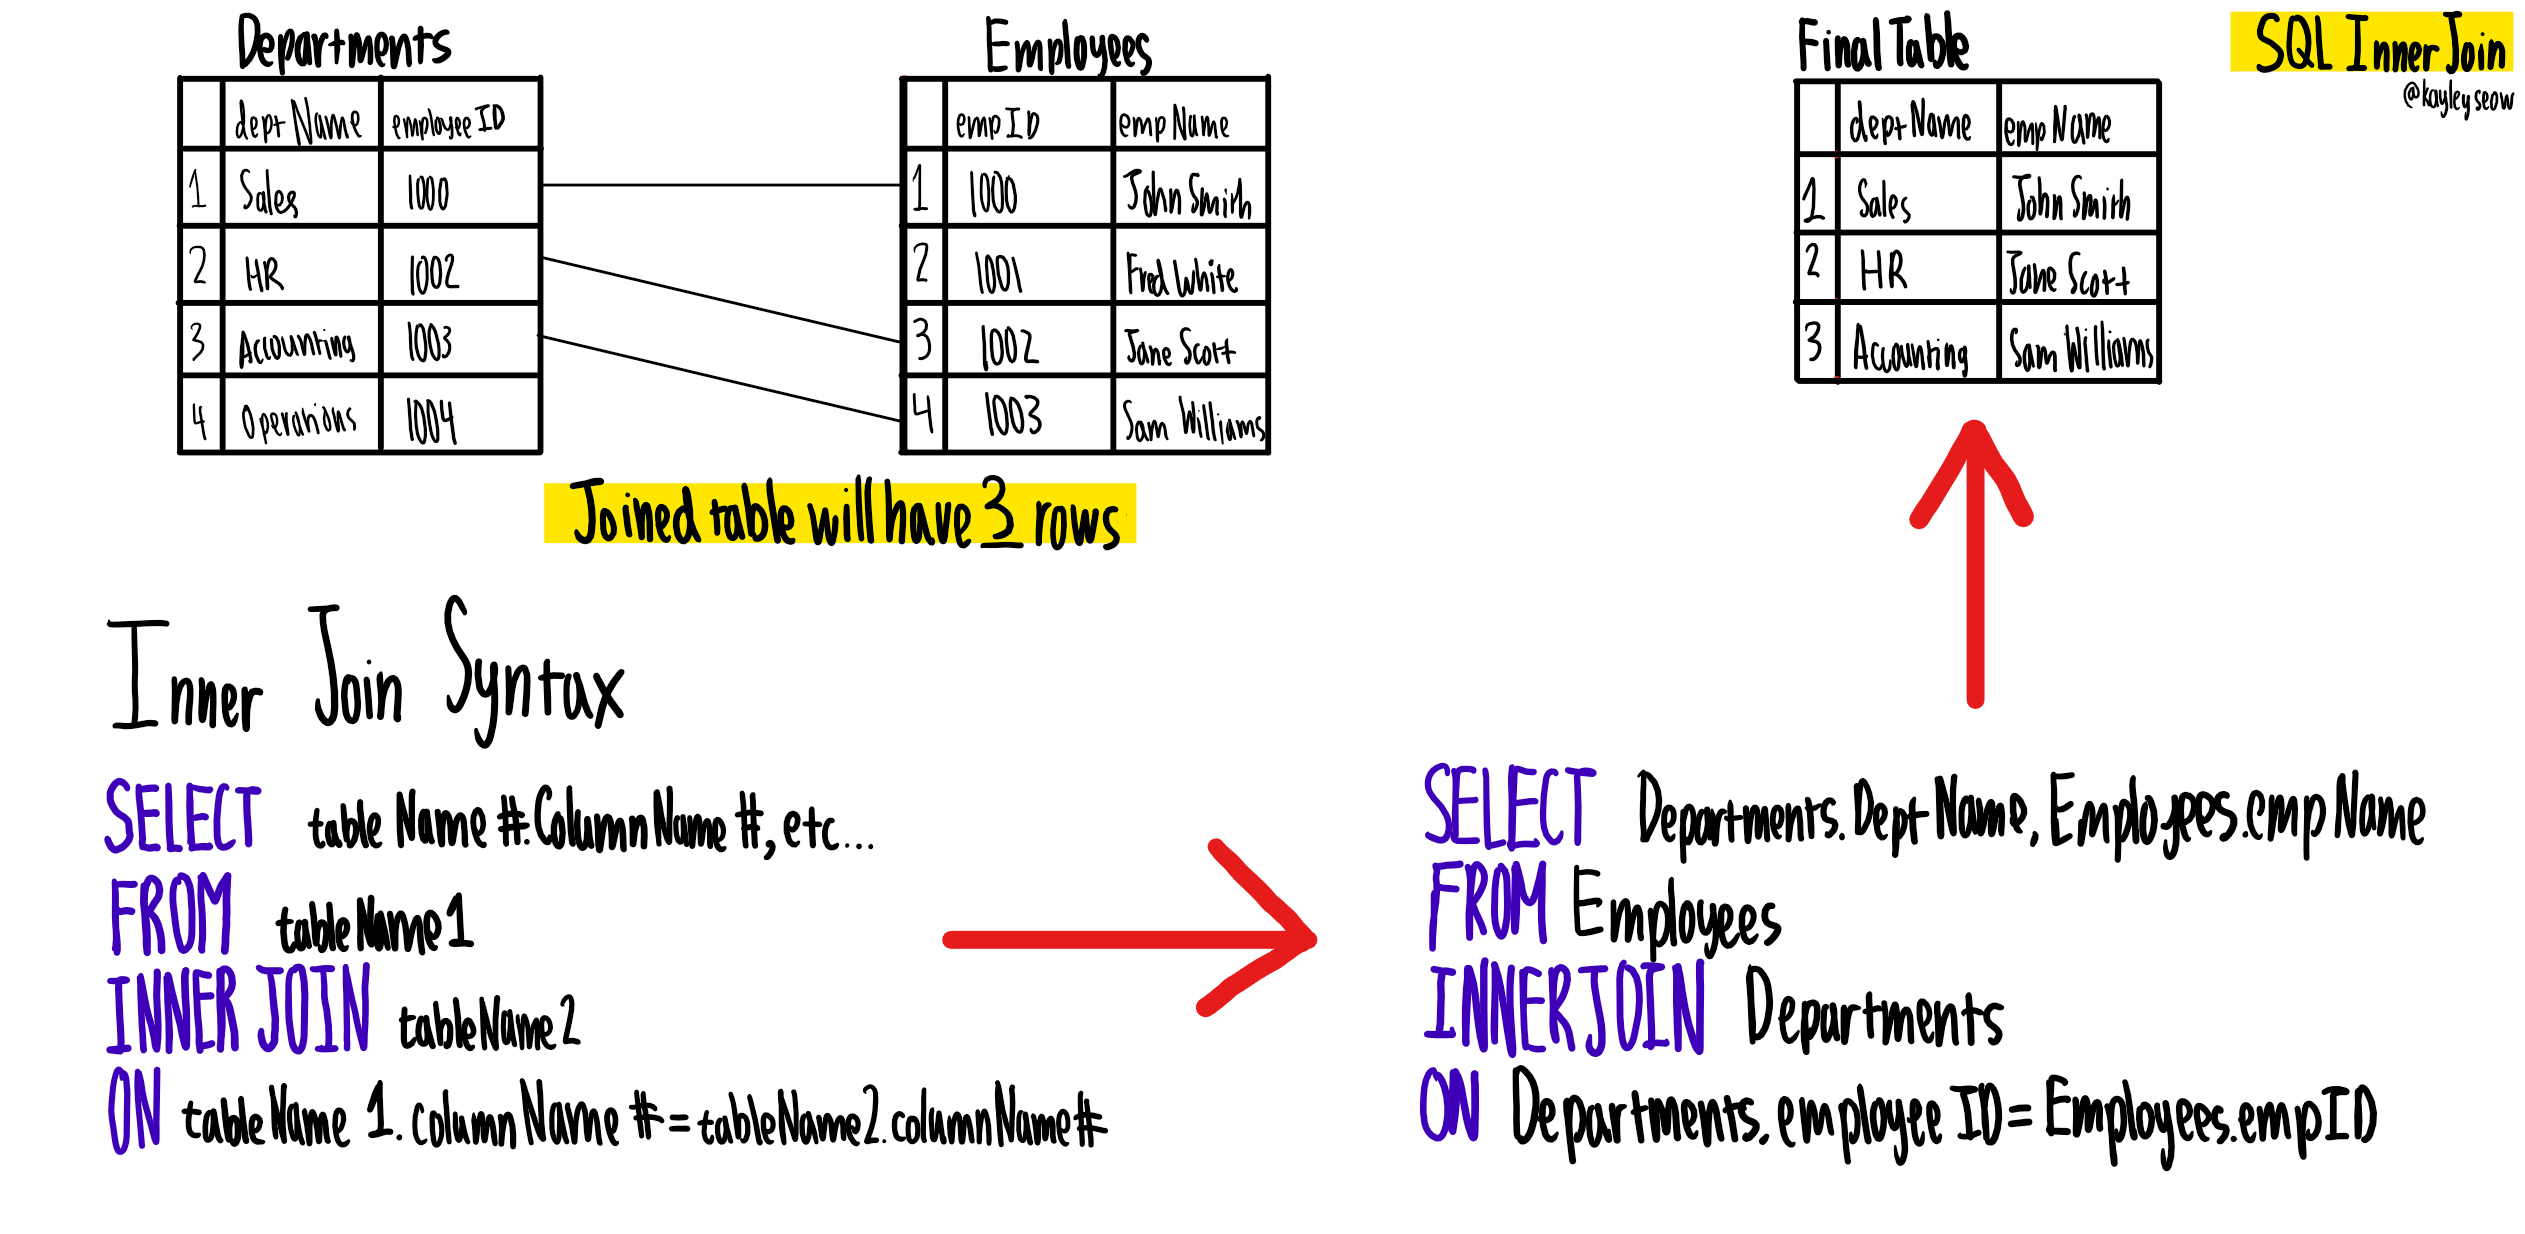 Departments
deptName employeeID
1 Sales 1000
2 HR 1002
3 Accounting 1003
4 Operations 1004
Employees
empID empName
1 1000 John Smith
2 1001 Fred White
3 1002 Jane Scott
4 1003 Sam Williams
Joined table will have 3 rows
Final Table
deptName empName
1 Sales John Smith
2 HR Jane Scott
3 Accounting Sam Williams
SQL Inner Join
@kayleyseow
Inner Join Syntax
SELECT tableName#.ColumnName#, etc...
FROM tableName1
INNER JOIN tableName2
ON tableName1.columnName#=tableName2.columnName#
SELECT Departments.DeptName, Employees.empName
FROM Employees
INNER JOIN Departments
ON Departments.employeeID=Employees.empID